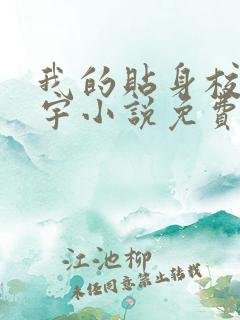 我的貼身校
字小說免費
江池柳
未經同意禁止轉載